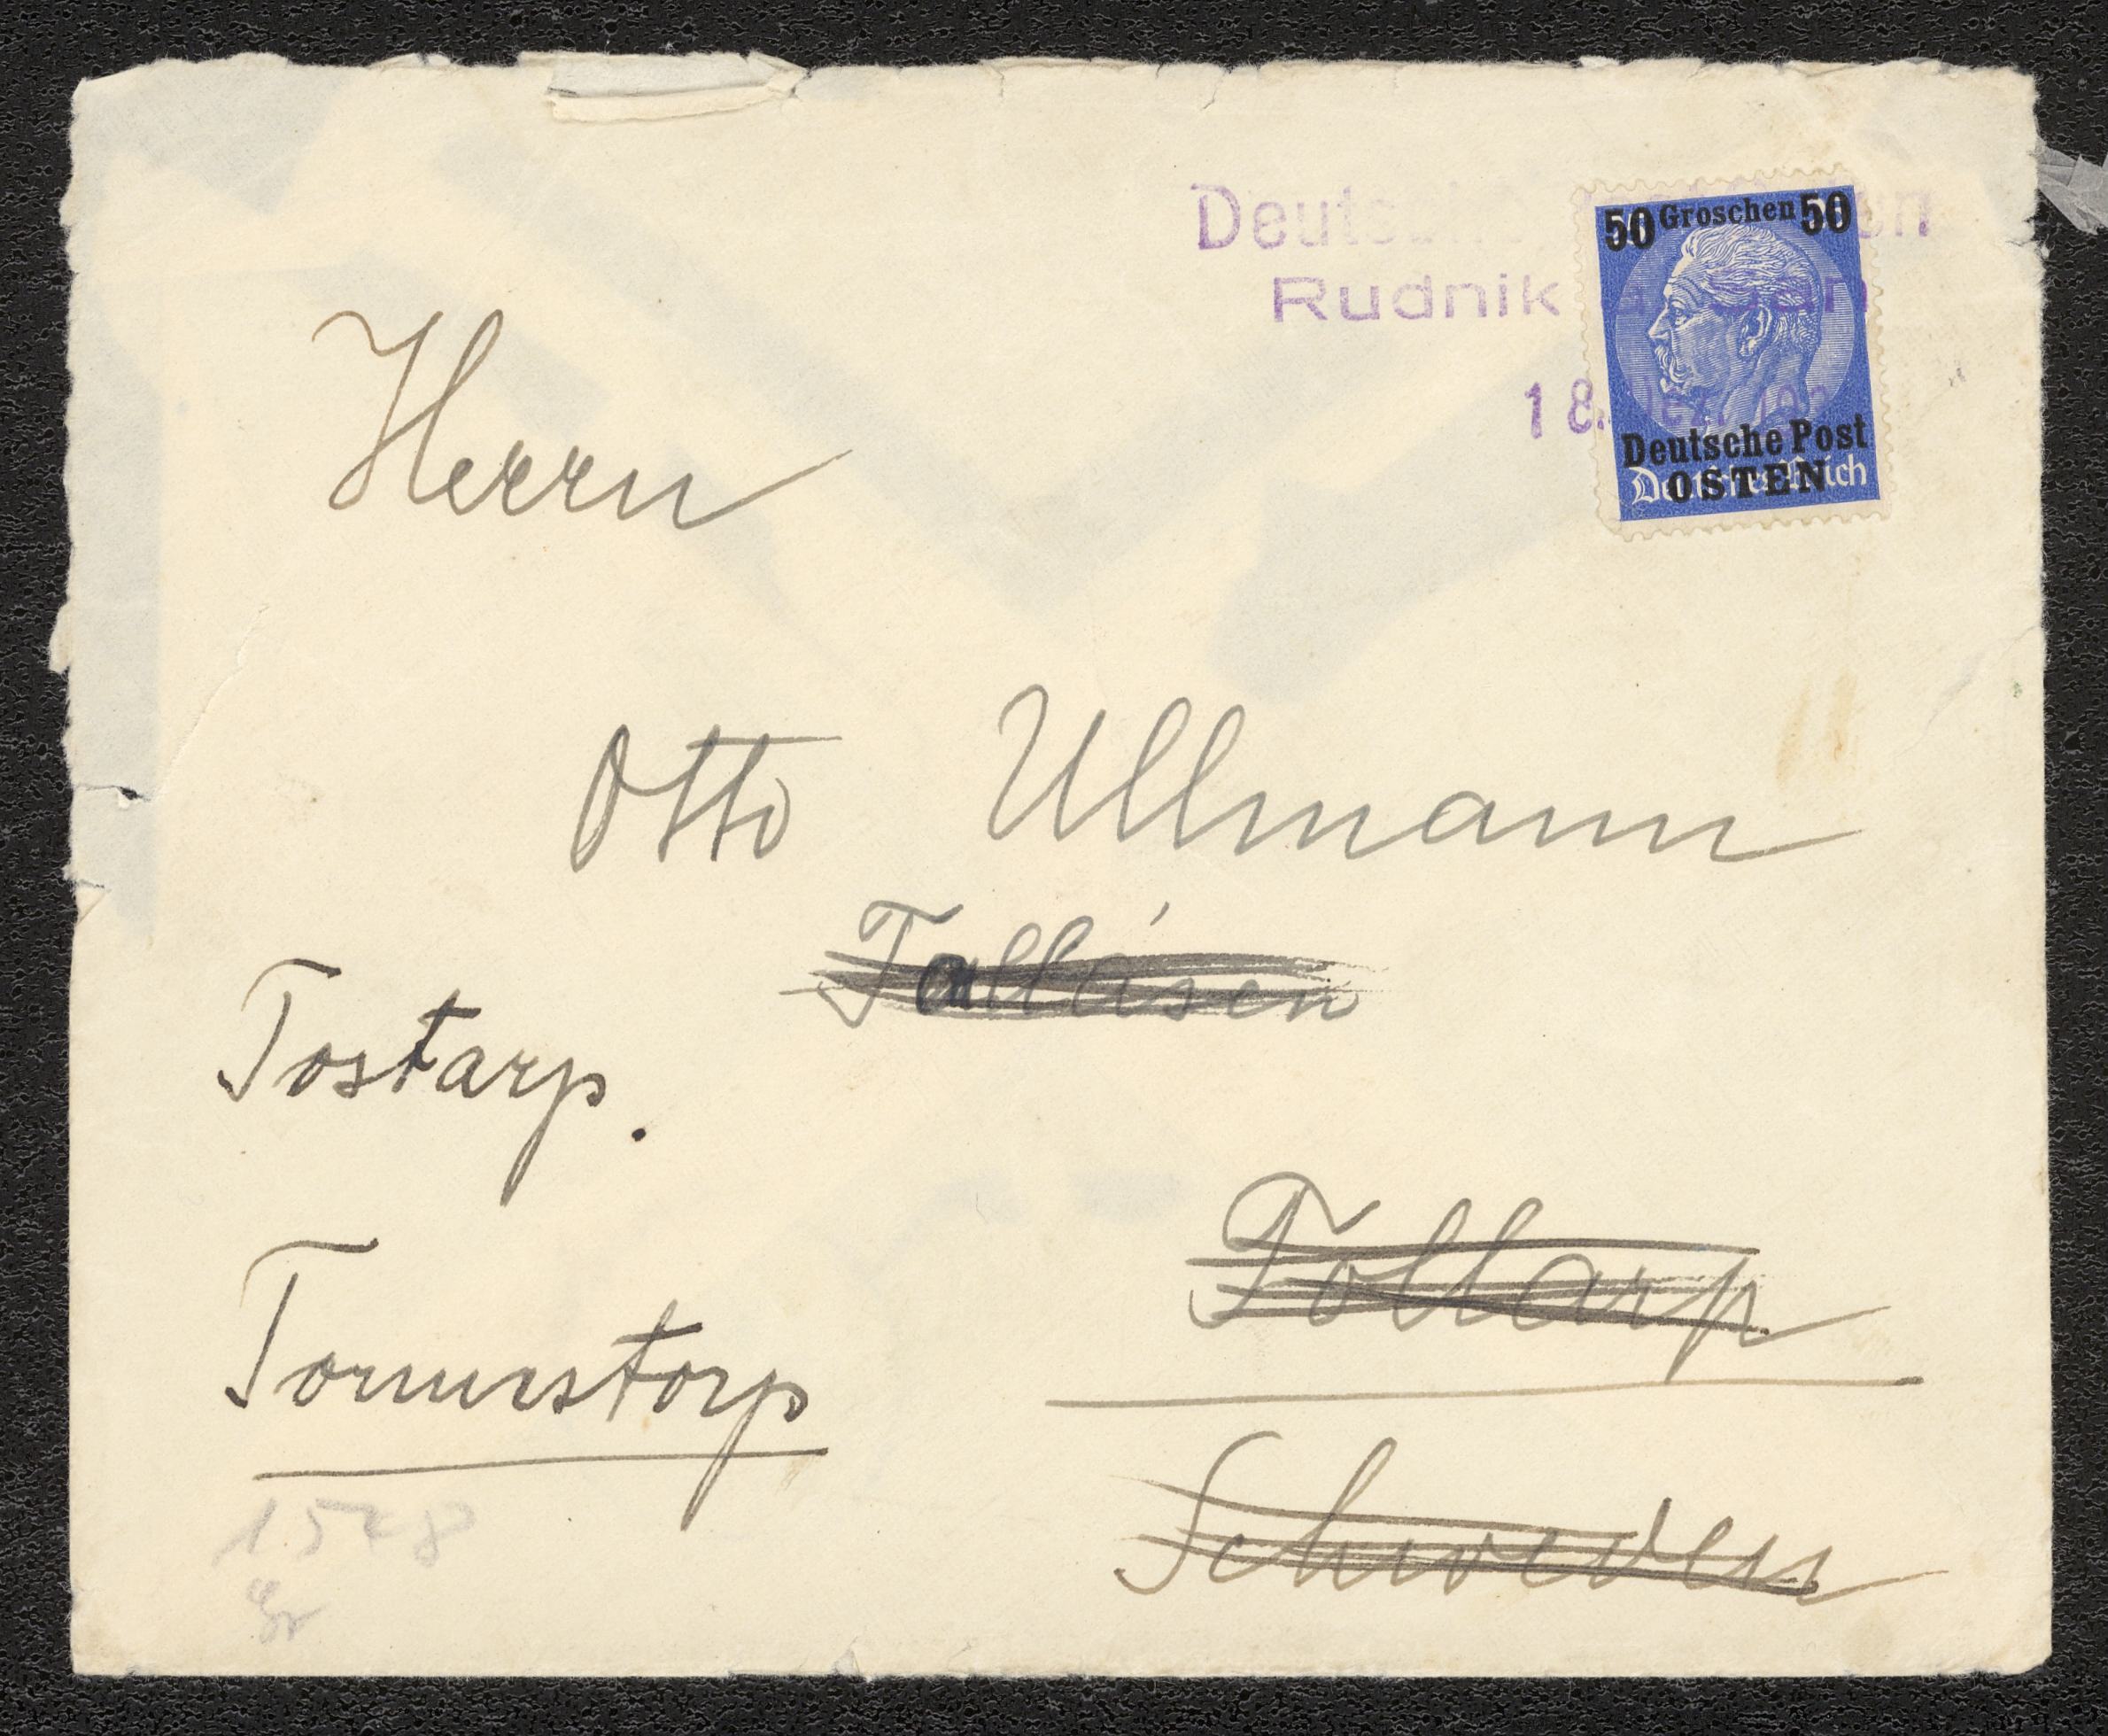 Deutsche
Rudnik
18. Dez. 193
50 Groschen 50
Deutsche Post
OSTEN
Deutsches Reich
Herrn
Otto Ullmann
Tallåsen
Tostarp.
Tollarp
Tormestorp
Schweden
1578